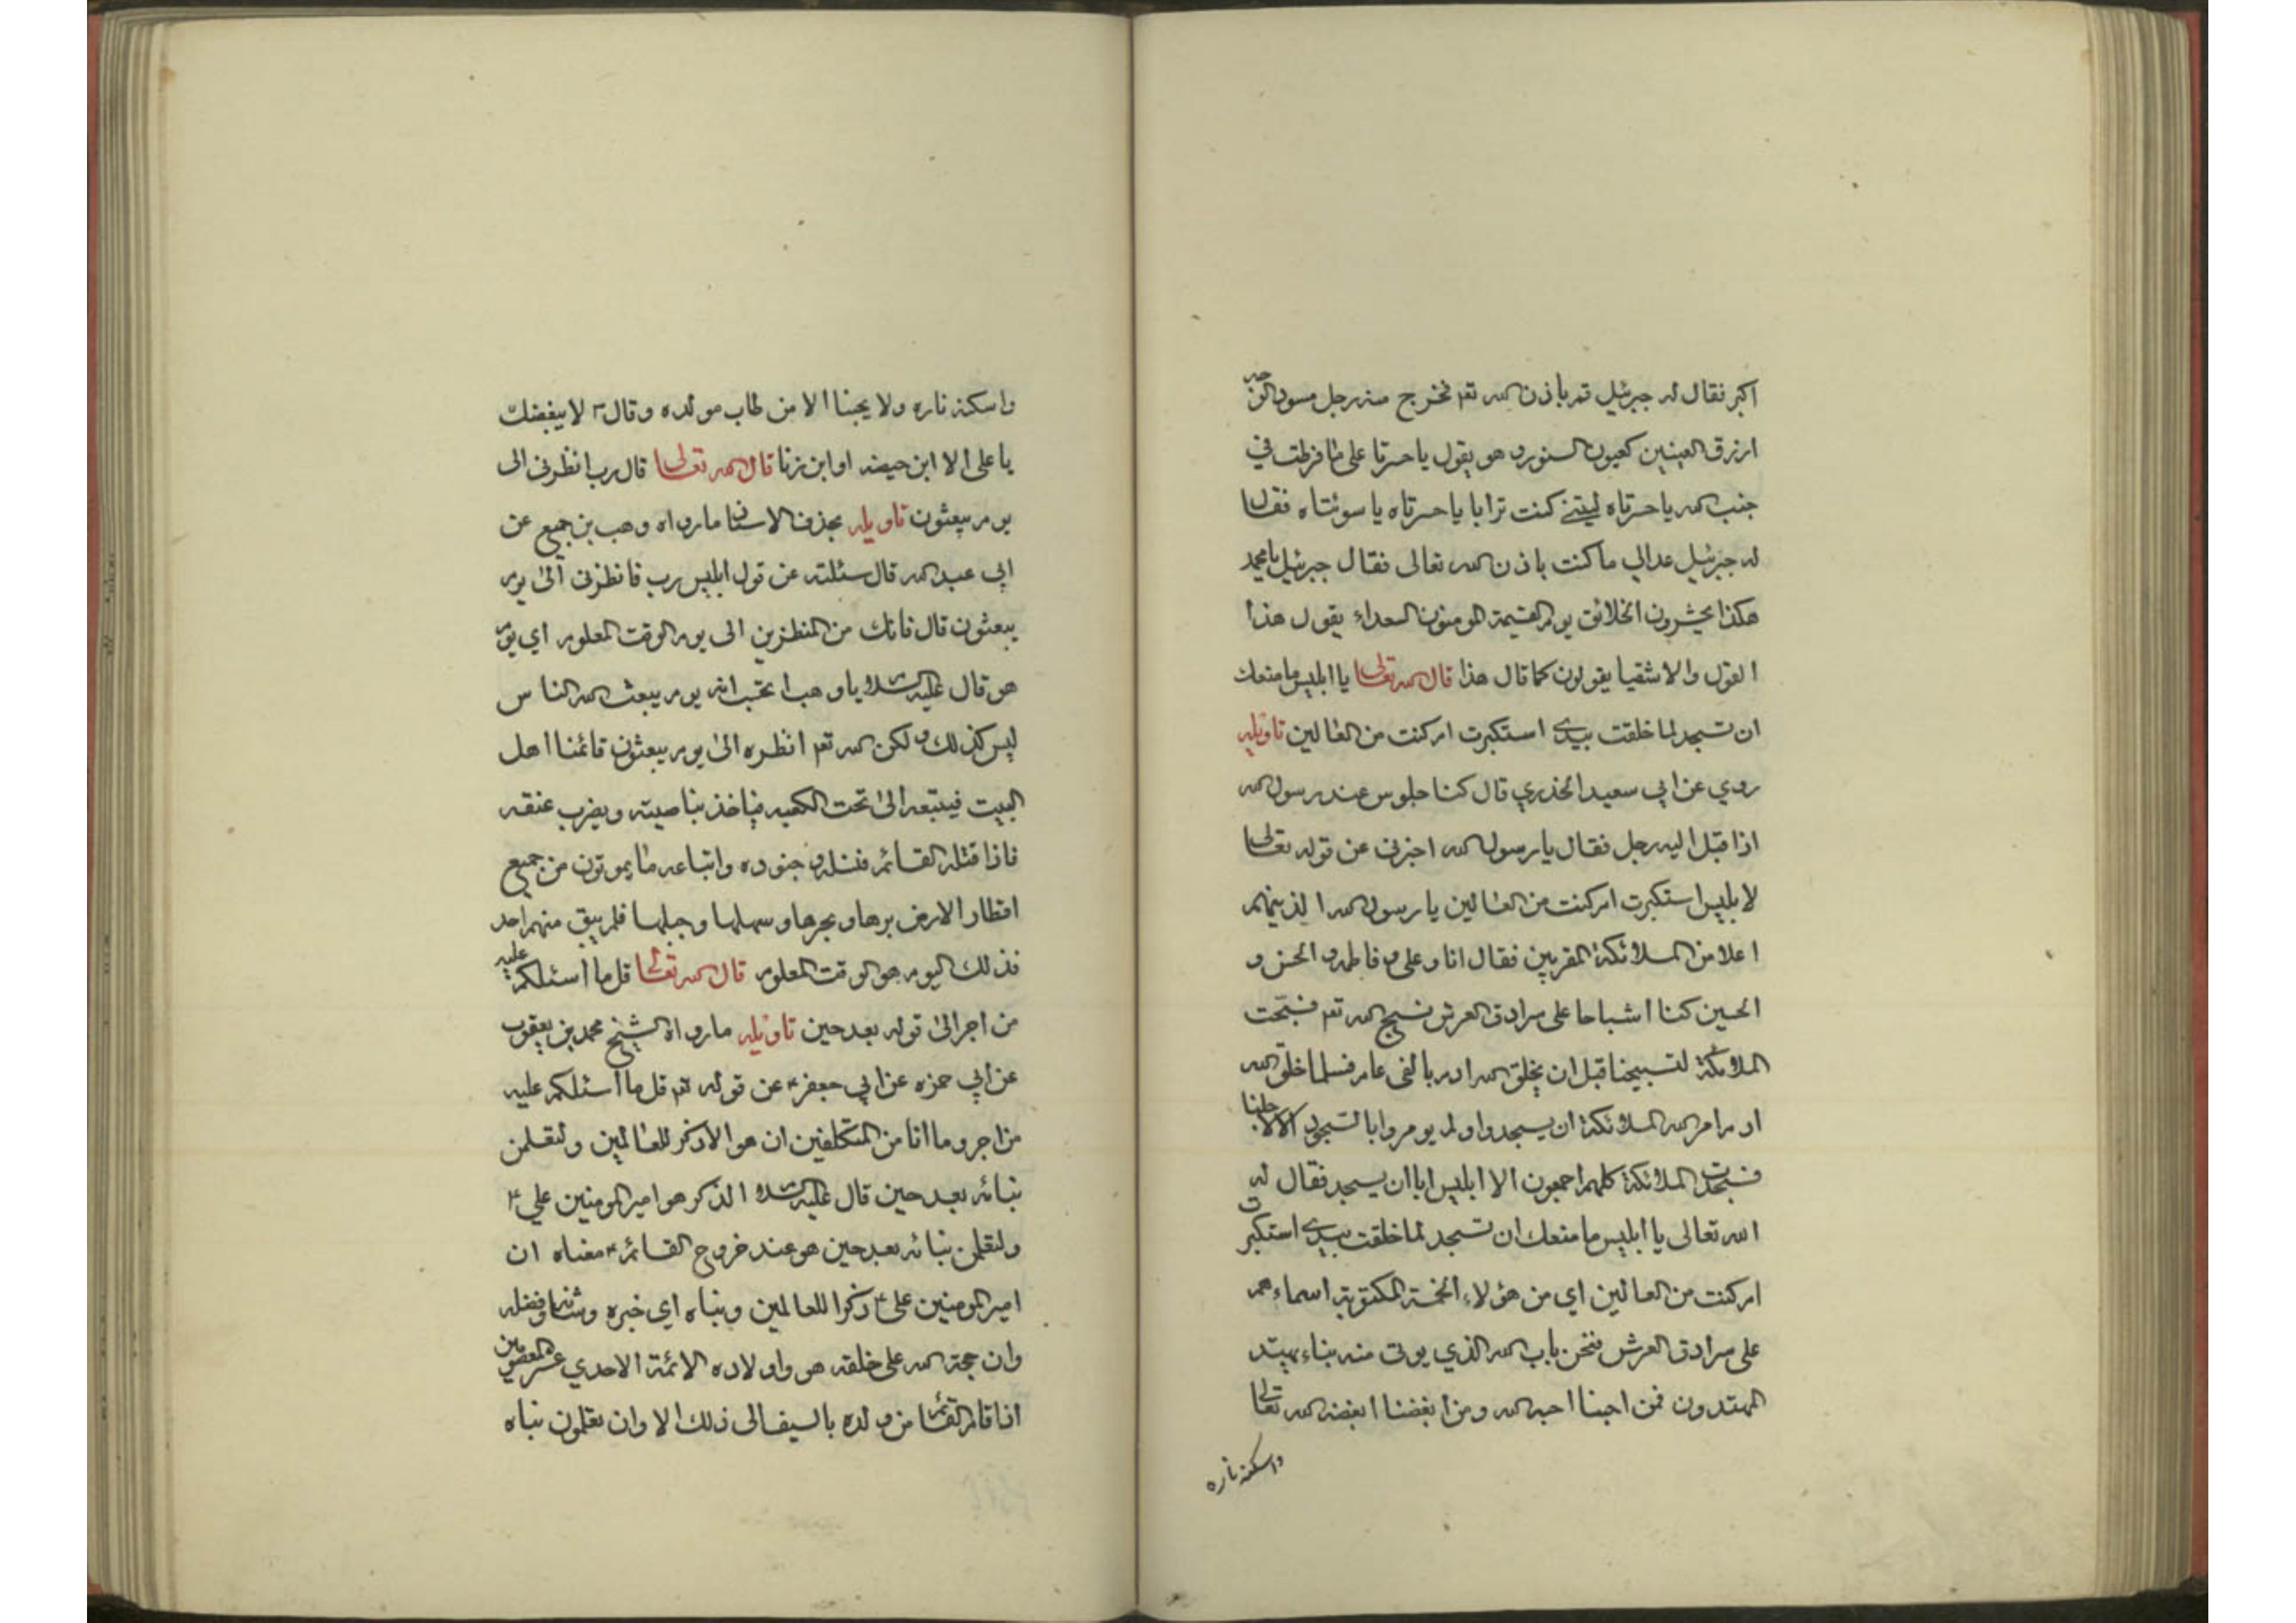 اكبر فقال له جبرئيل قم باذن الله تعم فخرج منه رجل مسود الوجه
ازرق العينين كعيون السنور و هو يقول يا حسرتا على ما فرطت في
جنب الله يا حسرتاه ليتني كنت ترابا يا حسرتاه يا سوئتاه فقال
له جبرئيل عد الي ما كنت باذن الله تعالى فقال جبرئيل يا محمد
هكذا يحشرون الخلائق يوم القيمة المومنون السعداء يقول هذا
القول والاشقيا يقولون كما قال هذا قال الله تعالى يا ابليس ما منعك
ان تسجد لما خلقت بيدي استكبرت ام كنت من العالين تاويله
روي عن ابي سعيد الخذري قال كنا جلوس عند رسول الله
اذا قبل اليه رجل فقال يا رسول الله اخبرني عن قوله تعالى
لابليس استكبرت ام كنت من العالين يا رسول الله الذينهم
اعلا من الملائكة المقربين فقال انا و على و فاطمه و الحسن و
الحسين كنا اشباحا على سرادق العرش نسبح الله تعم فسبّحت
الملائكة لتسبيحنا قبل ان يخلق الله ادم بالفى عام فلما خلق الله
ادم امر الله الملائكة ان يسجدوا و لم يومروا بالسجود الا لاجلنا
فسجدت الملائكة كلهم اجمعون الا ابليس ابا ان يسجد فقال له
الله تعالى يا ابليس ما منعك ان تسجد لما خلقت بيدي استكبرت
ام كنت من العالين اي من هؤلاء الخمسة المكتوبة اسماءهم
على سرادق العرش فنحن باب الله الذي يوتى منه بناء يهتد
المهتدون فمن احبنا احبه الله و من ابغضنا ابغضه الله تعالى
واسكنه ناره
واسكنه ناره ولا يحبنا الا من طاب مولده و قال لا يبغضك
يا على الا ابن حيضه او ابن زنا قال الله تعالى قال رب انظرنى الى
يوم يبعثون تاويله بحذف الاسناد ما رواه وهب بن جميع عن
ابي عبد الله قال سئلته عن قول ابليس رب فانظرنى الىٰ يوم
يبعثون قال فانك من المنظرين الى يوم الوقت المعلوم اي يوم
هو قال عليه السلام يا وهب اتحتسب انه يوم يبعث الله الناس
ليس كذلك و لكن الله تعم انظره الىٰ يوم يبعثون قائمنا اهل
البيت فيتبعه الىٰ تحت الكعبه فياخذ بناصيته و يضرب عنقه
فاذا قتله القائم فتله و جنوده و اتباعه ما يموتون من جميع
اقطار الارض برها و بحرها و سهلها و جبلها فلم يبق منهم احد
فذلك اليوم هو الوقت المعلوم قال الله تعالى قل ما اسئلكم عليه
من اجر الىٰ قوله بعد حين تاويله ما رواه الشيخ محمد بن يعقوب
عن ابي حمزه عن ابي جعفر عن قوله تعم قل ما اسئلكم عليه
من اجر و ما انا من المتكلفين ان هو الا ذكر للعالمين و لتعلمن
نبائه بعد حين قال عليه السلام الذكر هو امير المومنين علي ع
و لتعلمن نبائه بعد حين هو عند خروج القائم ع معناه ان
امير المومنين على ع ذكرا للعالمين و نباه اي خبره و شانه و فضله
و ان حجة الله على خلقه هو و اولاده الائمة الاحدي عشر المعصومين
اذا قام القائم من ولده بالسيف الى ذلك الا و ان تعلمون نباه